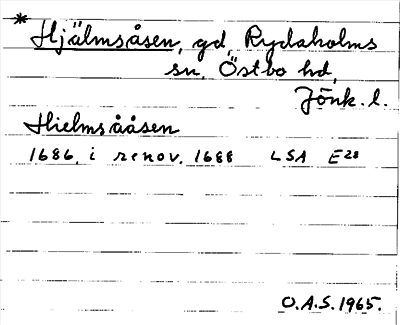 * Hjälmsåsen, gd, Rydaholms
sn, Östbo hd,
Jönk. l.
Hielmsååsen
1686, i renov. 1688 LSA E28
O.A.S. 1965.